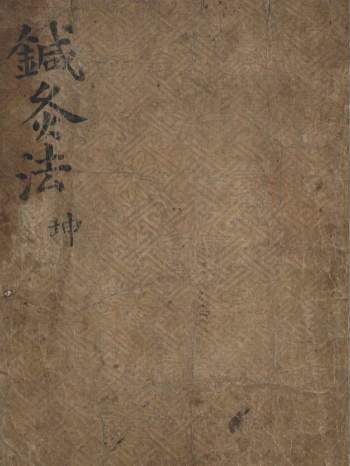 鍼灸法
坤